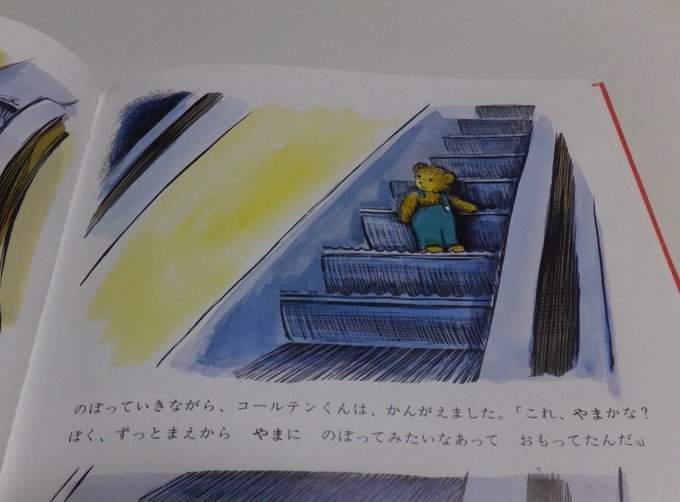 のぼっていきながら、コールテンくんは、かんがえました。「これ、やまかな?
ぼく、ずっとまえから　やまに　のぼってみたいなあって　おもってたんだ。」